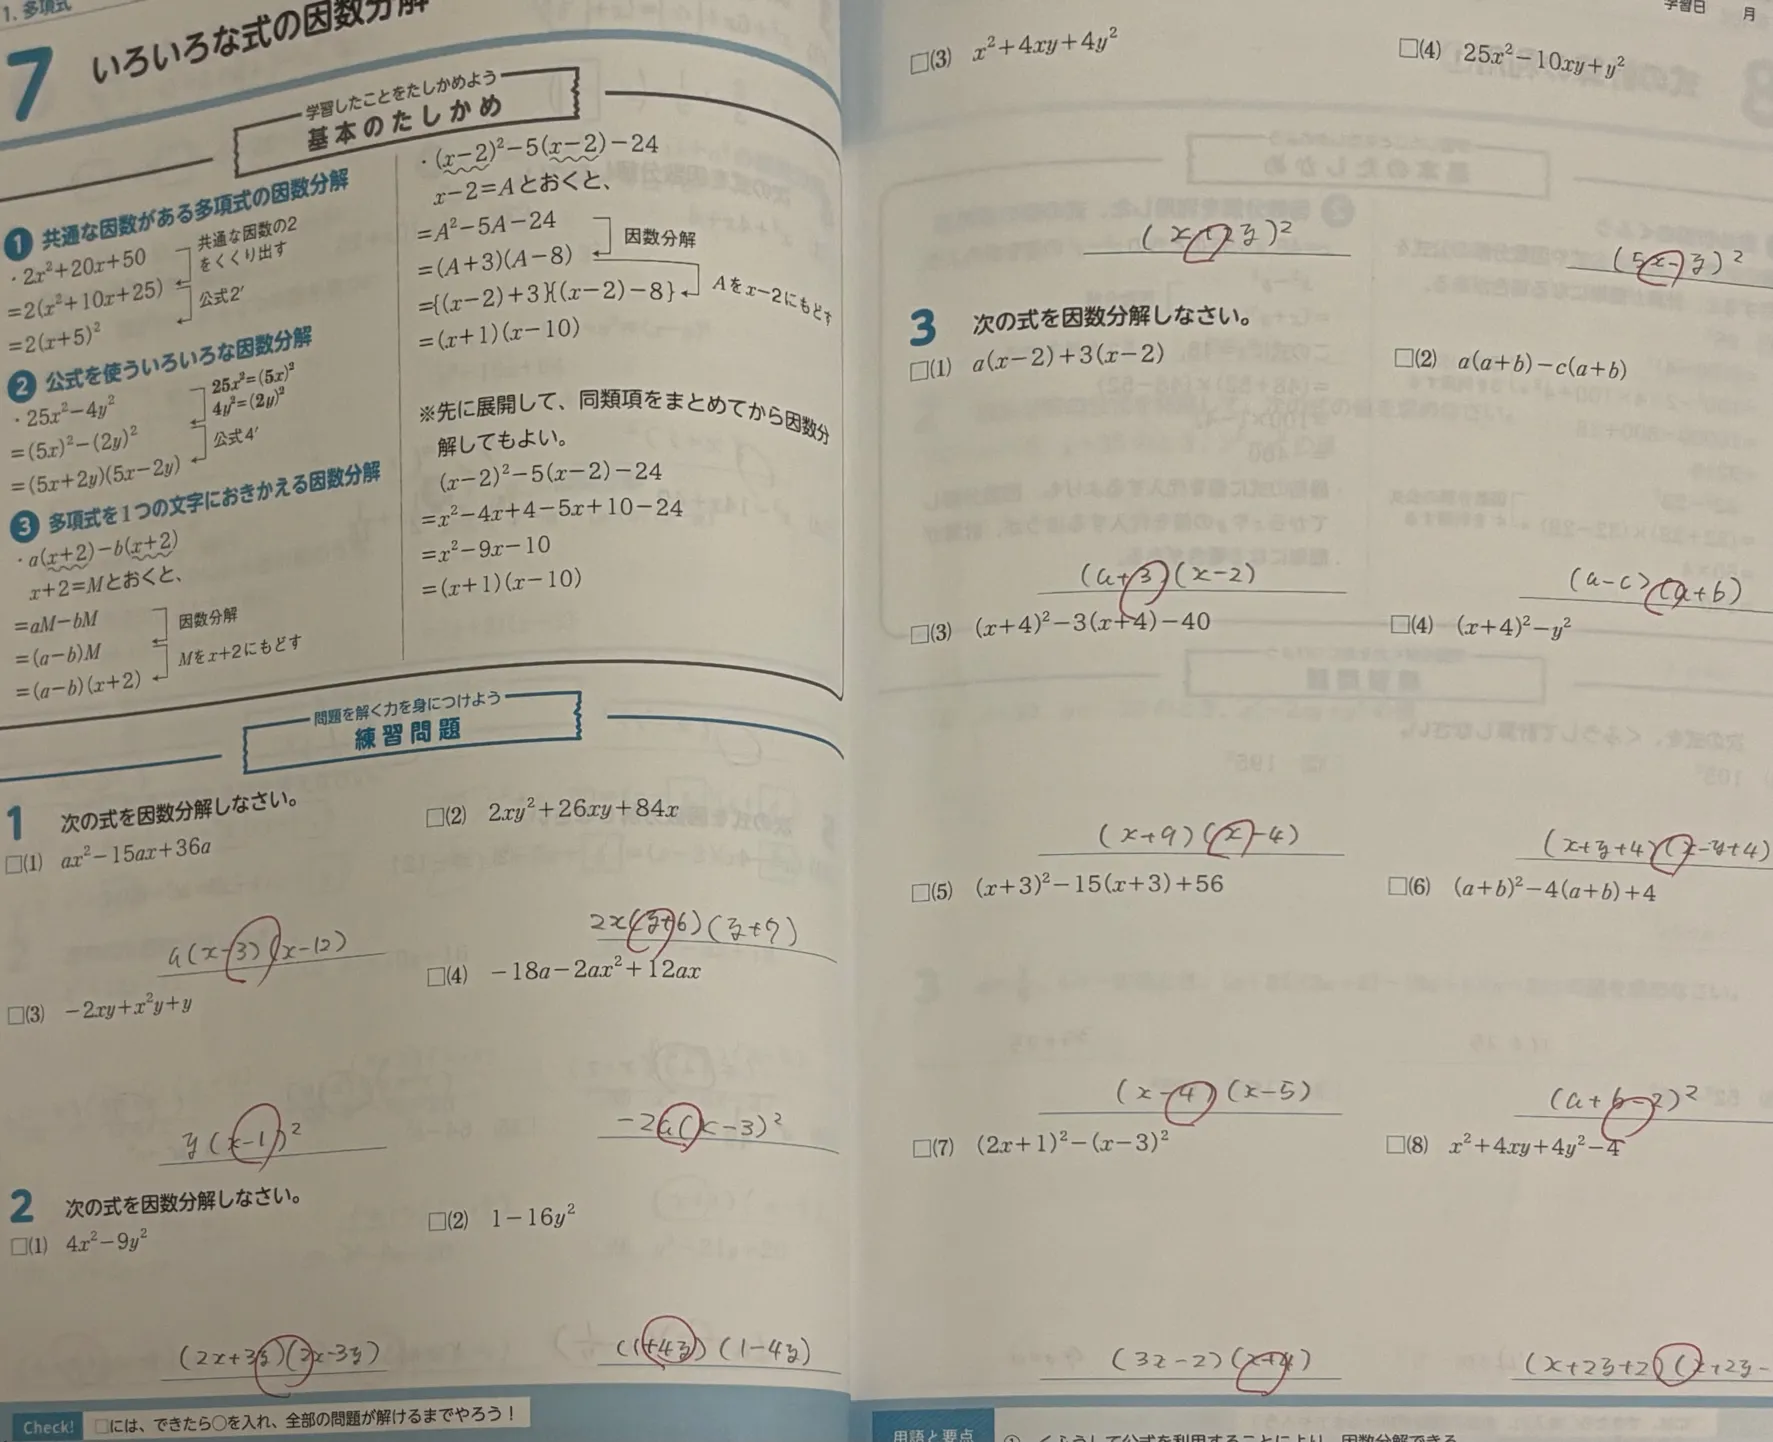 1. 多項式
7 いろいろな式の因数分解
学習したことをたしかめよう
基本のたしかめ
❶ 共通な因数がある多項式の因数分解
・2x²+20x+50
共通な因数の2
をくくり出す
=2(x²+10x+25)
公式2′
=2(x+5)²
❷ 公式を使ういろいろな因数分解
・25x²−4y²
25x²=(5x)²
4y²=(2y)²
=(5x)²−(2y)²
公式4′
=(5x+2y)(5x−2y)
❸ 多項式を1つの文字におきかえる因数分解
・a(x+2)−b(x+2)
x+2=Mとおくと、
=aM−bM
因数分解
=(a−b)M
Mをx+2にもどす
=(a−b)(x+2)
・(x−2)²−5(x−2)−24
x−2=Aとおくと、
=A²−5A−24
因数分解
=(A+3)(A−8)
={(x−2)+3}{(x−2)−8}
Aをx−2にもどす
=(x+1)(x−10)
※先に展開して、同類項をまとめてから因数分
解してもよい。
(x−2)²−5(x−2)−24
=x²−4x+4−5x+10−24
=x²−9x−10
=(x+1)(x−10)
問題を解く力を身につけよう
練習問題
1 次の式を因数分解しなさい。
□(1) ax²−15ax+36a
□(2) 2xy²+26xy+84x
a(x-3)(x-12)
2x(y+6)(y+7)
□(3) −2xy+x²y+y
□(4) −18a−2ax²+12ax
y(x-1)²
-2a(x-3)²
2 次の式を因数分解しなさい。
□(1) 4x²−9y²
□(2) 1−16y²
(2x+3y)(2x-3y)
(1+4y)(1-4y)
Check! □には、できたら○を入れ、全部の問題が解けるまでやろう！
学習日 月
□(3) x²+4xy+4y²
□(4) 25x²−10xy+y²
(x+2y)²
(5x-y)²
3 次の式を因数分解しなさい。
□(1) a(x−2)+3(x−2)
□(2) a(a+b)−c(a+b)
(a+3)(x-2)
(a-c)(a+b)
□(3) (x+4)²−3(x+4)−40
□(4) (x+4)²−y²
(x+9)(x-4)
(x+y+4)(x-y+4)
□(5) (x+3)²−15(x+3)+56
□(6) (a+b)²−4(a+b)+4
(x-4)(x-5)
(a+b-2)²
□(7) (2x+1)²−(x−3)²
□(8) x²+4xy+4y²−4
(3x-2)(x+4)
(x+2y+2)(x+2y-
用語と要点
① くふうして公式を利用することにより、因数分解できる